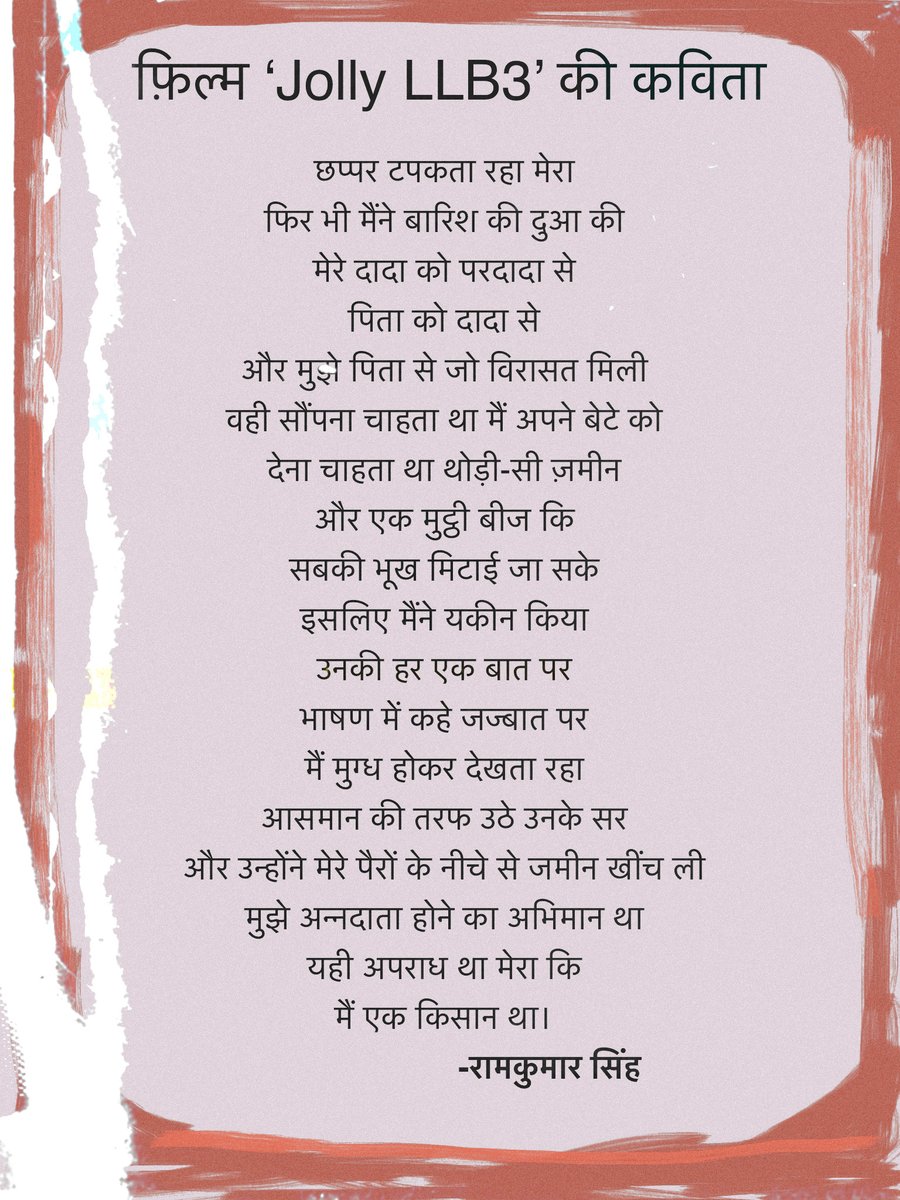 फ़िल्म ‘Jolly LLB3’ की कविता
छप्पर टपकता रहा मेरा
फिर भी मैंने बारिश की दुआ की
मेरे दादा को परदादा से
पिता को दादा से
और मुझे पिता से जो विरासत मिली
वही सौंपना चाहता था मैं अपने बेटे को
देना चाहता था थोड़ी-सी ज़मीन
और एक मुट्ठी बीज कि
सबकी भूख मिटाई जा सके
इसलिए मैंने यकीन किया
उनकी हर एक बात पर
भाषण में कहे जज्बात पर
मैं मुग्ध होकर देखता रहा
आसमान की तरफ उठे उनके सर
और उन्होंने मेरे पैरों के नीचे से जमीन खींच ली
मुझे अन्नदाता होने का अभिमान था
यही अपराध था मेरा कि
मैं एक किसान था।
-रामकुमार सिंह